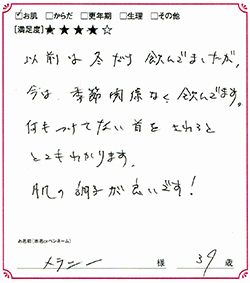 ☑お肌 □からだ □更年期 □生理 □その他
[満足度]★★★★☆
以前は冬だけ飲んでましたが、
今は、季節関係なく飲んでます。
何もつけてない首をさわると
とてもわかります。
肌の調子が良いです!
お名前(本名orペンネーム)
メラニー 様 39 歳